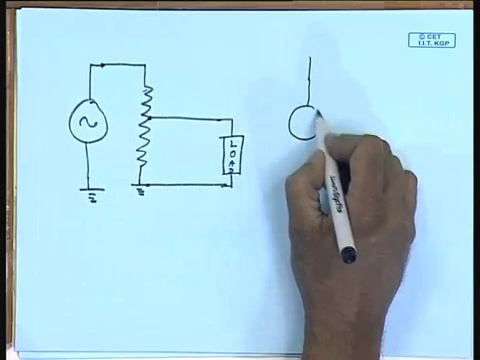 © CET
I.I.T. KGP
~
LOAD